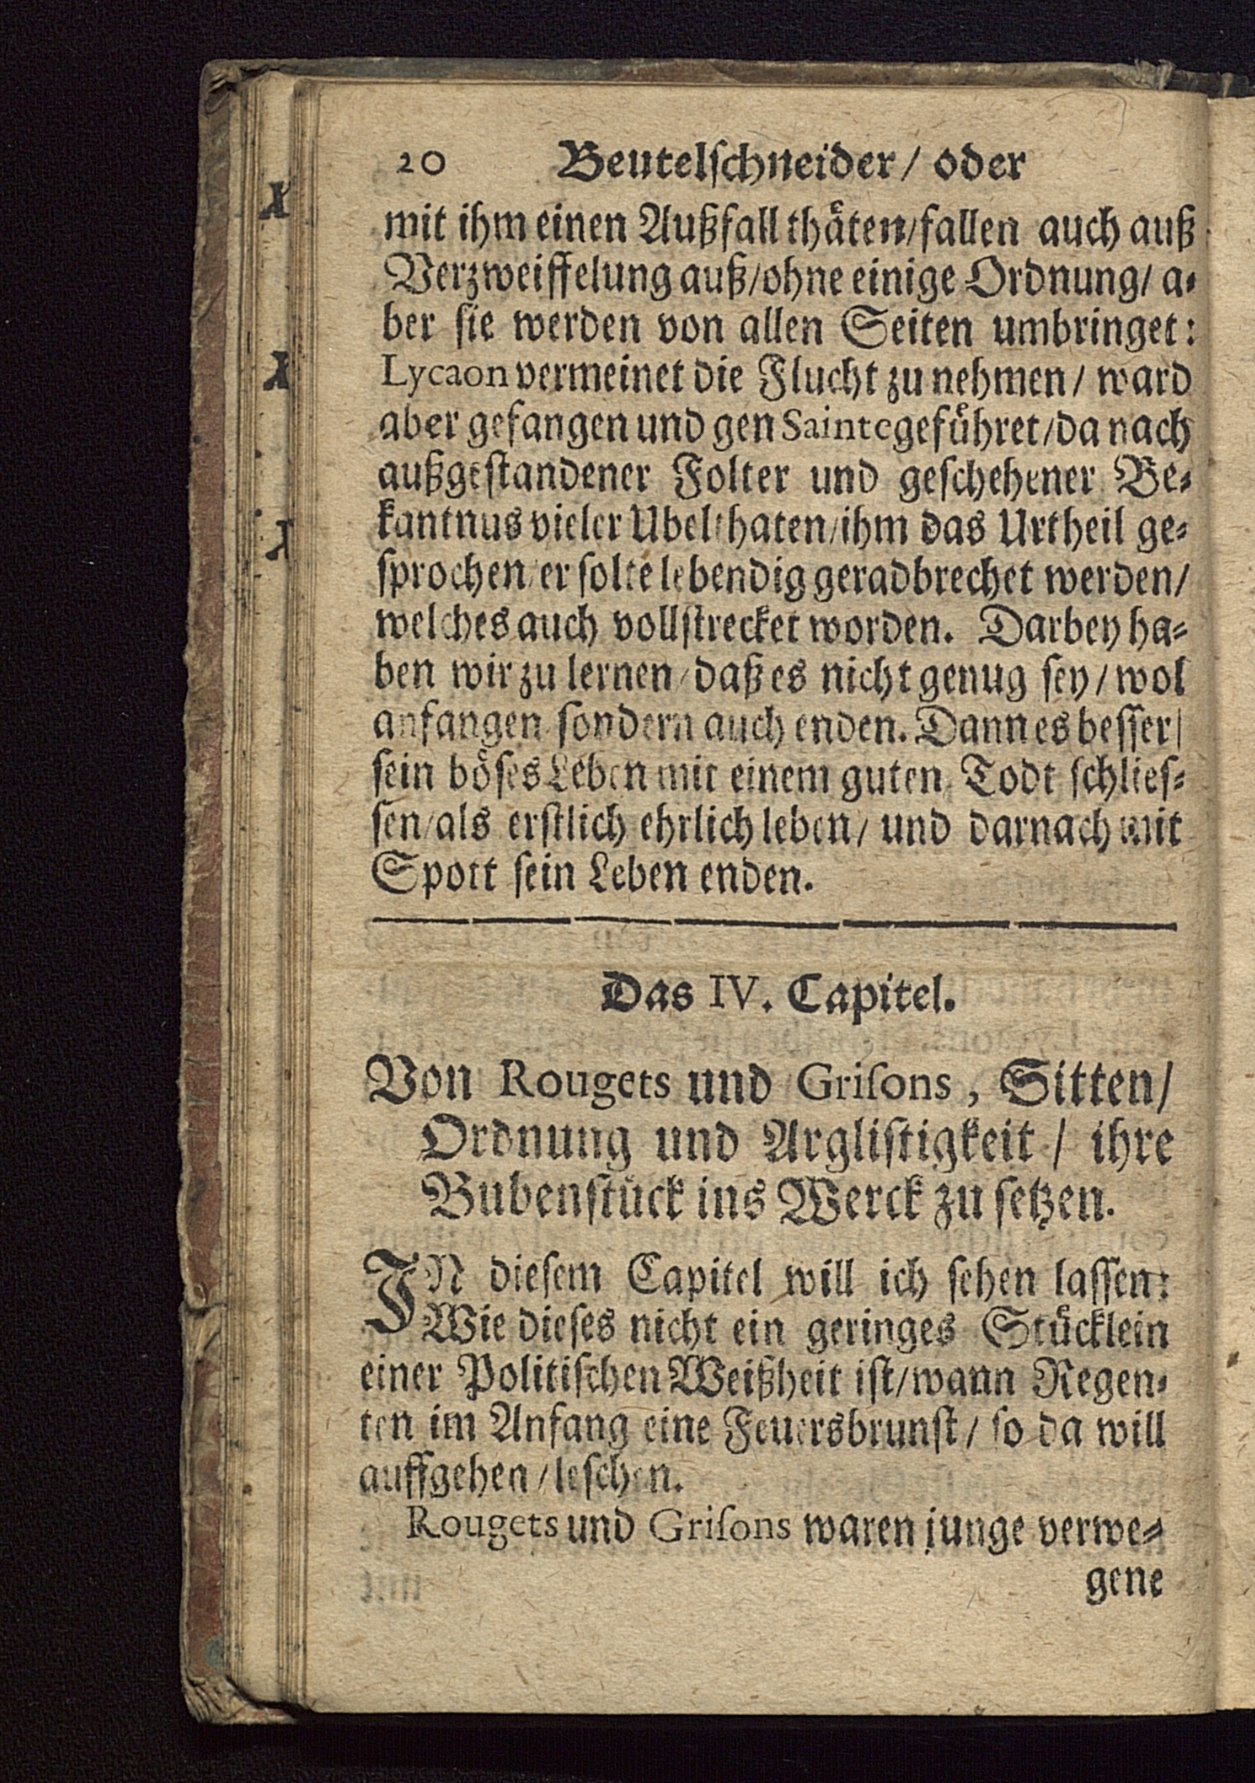 20 Beutelschneider/ oder
mit ihm einen Außfall thäten/fallen auch auß
Verzweiffelung auß/ohne einige Ordnung/ a-
ber sie werden von allen Seiten umbringet:
Lycaon vermeinet die Flucht zu nehmen/ ward
aber gefangen und gen Sainte geführet/da nach
außgestandener Folter und geschehener Be-
kantnus vieler Ubelthaten/ihm das Urtheil ge-
sprochen/er solte lebendig geradbrechet werden/
welches auch vollstrecket worden. Darbey ha-
ben wir zu lernen/daß es nicht genug sey/wol
anfangen sondern auch enden. Dann es besser/
sein böses Leben mit einem guten Todt schlies-
sen/als erstlich ehrlich leben/ und darnach mit
Spott sein Leben enden.
Das IV. Capitel.
Von Rougets und Grisons, Sitten/
Ordnung und Arglistigkeit/ ihre
Bubenstück ins Werck zu setzen.
IN diesem Capitel will ich sehen lassen:
Wie dieses nicht ein geringes Stücklein
einer Politischen Weißheit ist/wann Regen-
ten im Anfang eine Feuersbrunst/ so da will
auffgehen/leschen.
Rougets und Grisons waren junge verwe-
gene